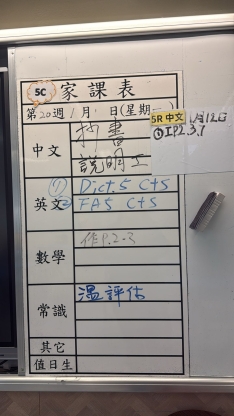 5C 家課表
第20週 1月 日(星期一)
5R 中文 1月12日
① IP2.3.7
中文
抄書
說明文
英文
① Dict.5 C+S
② FA5 C+S
數學
作P.2-3
常識
溫評估
其它
值日生